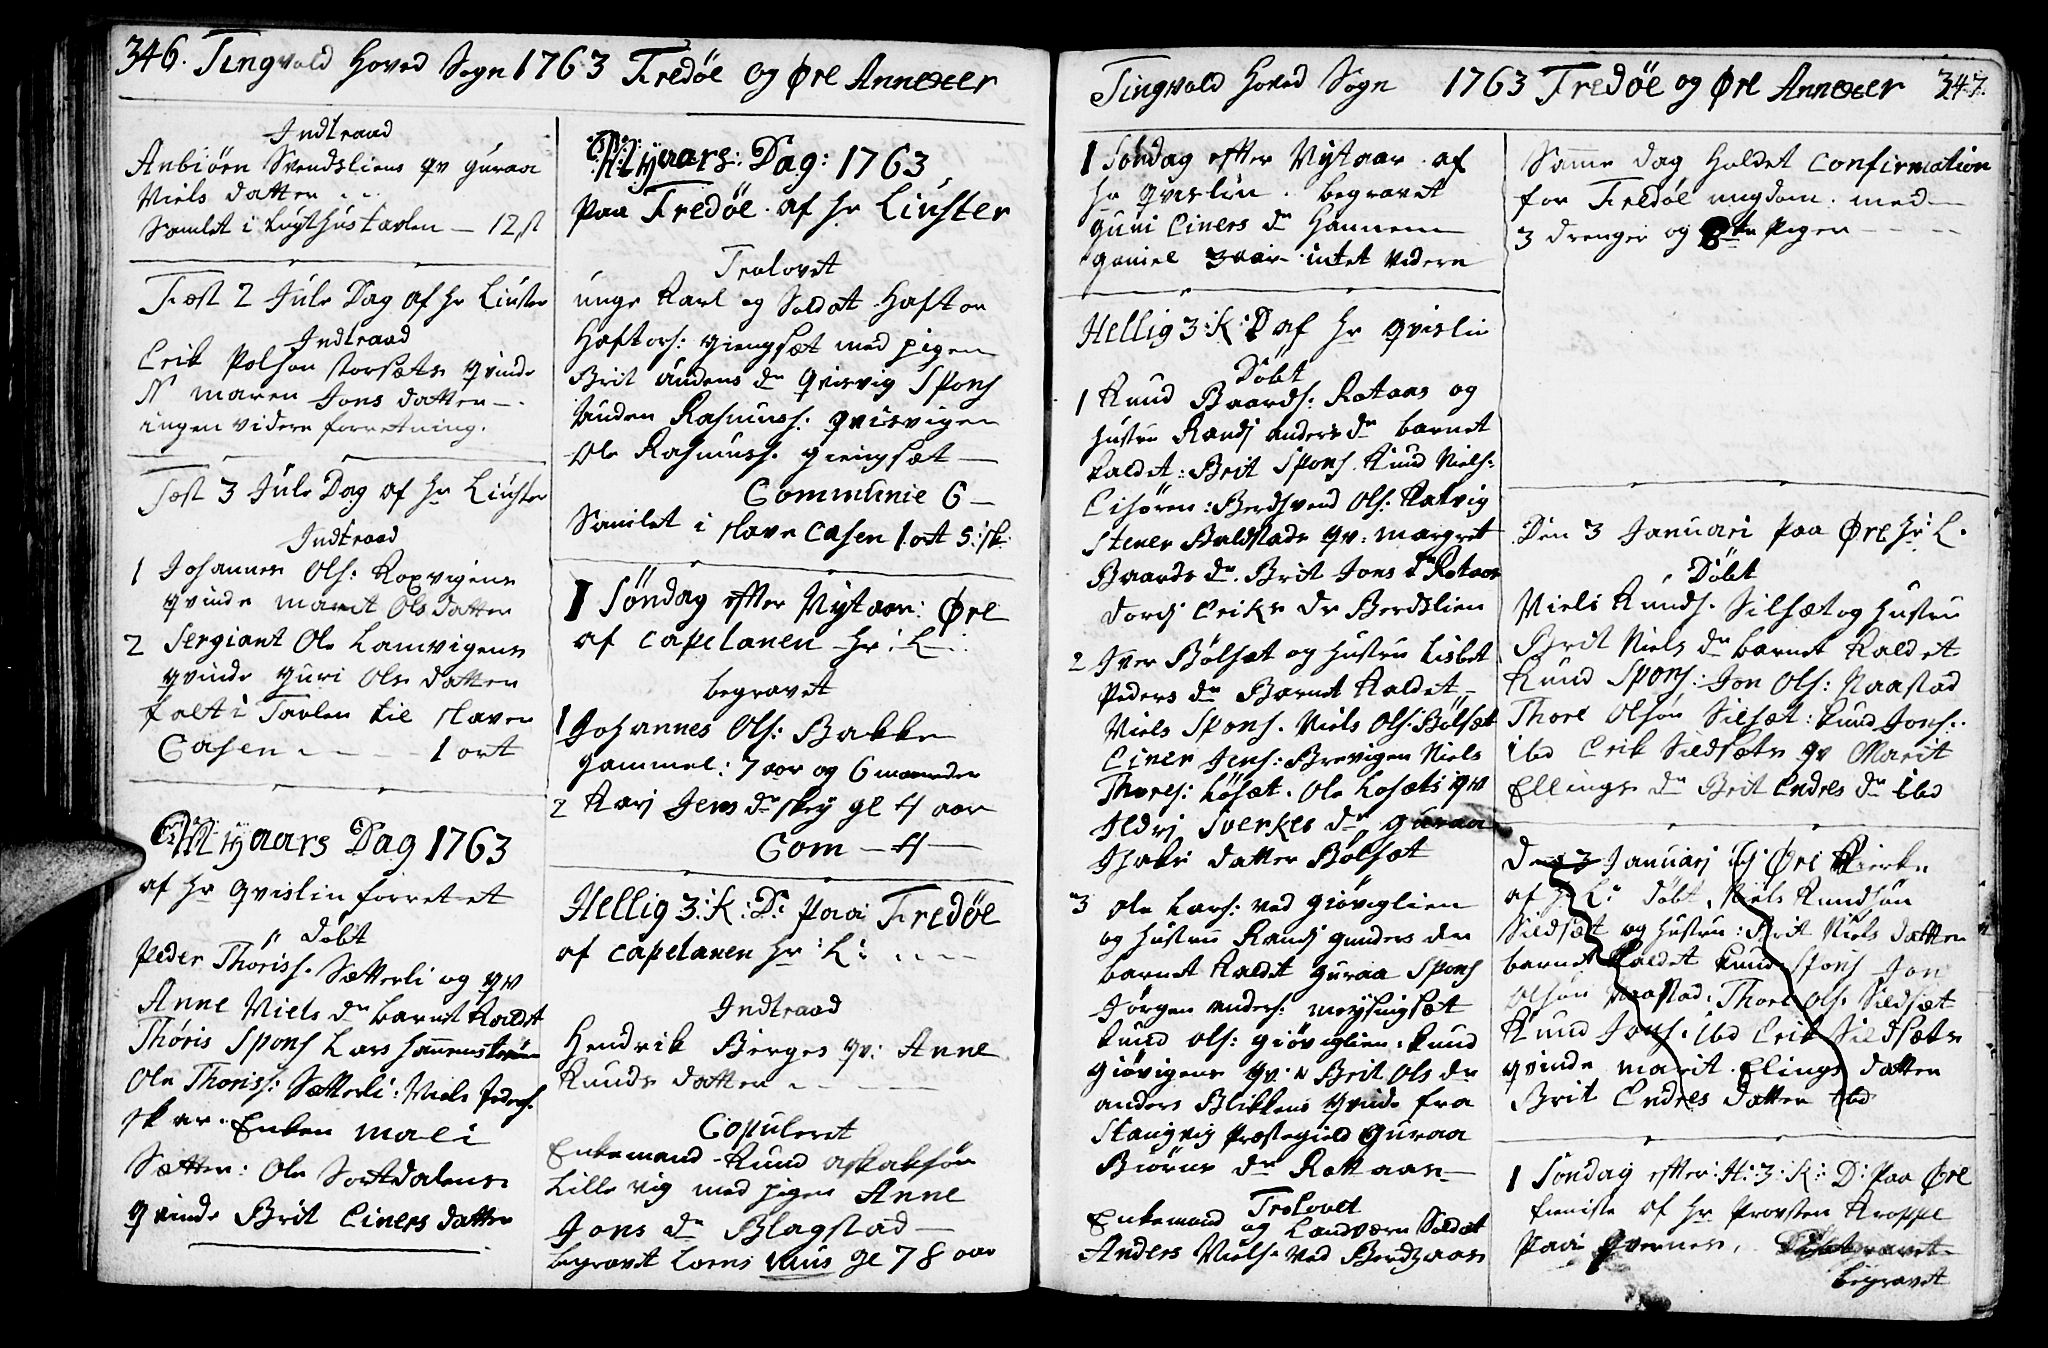 346. Tingvold Hoved Sogn 1763 Fredöe og Øre Annexer
Indtraad
Anbiörn Svendsliens qv Guraa
Niels datter
Samlet i tugthustavlen - 12 s
Fæst 2 Jule Dag af Hr Liuster
Indtraad
Erik Polsøn storsæts qvinde
N maren Jons datter -
ingen videre forretning.
Fæst 3 Jule Dag af Hr Liuster
Indtraad
1 Johannes Ols: Roxvigens
qvinde marit Ols datter
2 Sergiant Ole Lamvigens
qvinde guri Ols datter
falt i Tavlen til slaven
Casen - - - - 1 ort
Nyaars Dag 1763
af Hr Qvislin forrettet
Döbt
Peder Thoriss. Sætterli og qv
Anne Niels dr barnet kaldet
Thöris Spons Lars
Ole Thoriss: Sætterli: Niels Peders.
skar. Enken mali
Sætter: Ole Sortdalens
qvinde Brit Einers datter
Nyaars: Dag: 1763
Paa Fredöe af Hr Liuster
Trolovet
unge Karl og Soldat Haftor
Haftors: giengsæt med pigen
Brit Audens dr Qvisvig Spons
Auden Rasmuss: qvisvigen
Ole Rasmuss. giengsæt -
Communie 6 -
Samlet i slave casen 1 ort 5: sk:
1 Söndag efter Nytaar: Øre
af capelanen Hr: L:
begravet
1 Johannes Ols: Bakke
gammel: 7 aar og 6 maaneder
2 Kari Jens dr skey gl 4 aar
Com - 4 -
Hellig 3: K: D: paa Fredöe
af capelanen Hr: L:
Indtraad
Hendrik Birges qv: Anne
Knuds datter - - -
Copuleret
Enkemand - Knud Aslaksön
Lille vig med pigen Anne
Jons dr Blagstad -
begravet Loens gl 78 aar
Tingvold Hoved Sogn 1763 Fredöe og Øre Annexer 347.
1 Söndag efter Nytaar af
Hr Qvislin. begravet
guri Einers dr Hannem
gamel 3 aar intet videre
Hellig 3: K: D af Hr Qvislin
Döbt
1 Knud Baards: Rotaas og
Hustru Randj Anders dr barnet
kaldet: Brit Spons Knud Niels:
Eisören: Berdsvend Ols: Kalvig
Stener Boldstads qv: margret
Baards dr. Brit Jons dr Rotaas
dordj Eriks dr Berdslien
2 Iver Bölsæt og Hustru Lisbet
Peders dr Barnet Kaldet -
Niels Spons. Niels Ols: Bölsæt
Einer Jens: Brevigen Niels
Thores: Lösæt. Ole Losæts qv
Ildrj Sverkes dr Guraa
Isaks datter Bolsæt
3 Ole Lars: ved giöviglien
og Hustru Randj gunders dr
barnet Kaldet guraa Spons
Jörgen Anders: meysingsæt
Knud Ols: giöviglien: Knud
giövigens qv: Brit Ols dr
anders Blikkens qvinde fra
Stangvig Præstegield Guraa
Biörns dr Rottaas -
Trolovet
Enkemand og Landværn Soldat
Anders Niels: ved Berdsaas
Samme dag Holdet Confirmation
for Fredöe ungdom. med -
3 drenger og piger - - -
Den 3 Januari paa Øre Hr: L.
Döbt
Niels Knuds. Silsæt og Hustru
Brit Niels dr barnet Kaldet
Knud Spons: Jon Ols: Naastad
Thore Olsön Silsæt: Knud Jons:
ibd Erik Sildsæts qv Marit
Ellings dr Brit Endres dr ibd
Den 3 Januarj i Øre Kierke
af Hr L: Döbt. Niels Knudsön
Sildsæt og Hustru: Brit Niels datter
barnet Kaldet Knud Spons Jon
Olsön Naastad. Thore Ols. Sildsæt
Knud Jons. ibd Erik Sildsæts
qvinde marit. Elings datter
Brit Endres datter ibd
1 Söndag efter: H: 3: K: D: paa Øre
tieniste af Hr Provsten Kroppe
paa Qvernes.
begravet